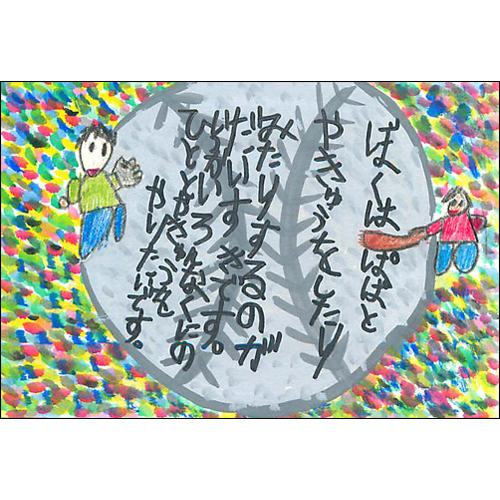 ぼくは ぱぱと
やきゅうをしたり
みたりするのが
だいすきです。
いろんなくにの
ひととやきゅうを
やりたいです。